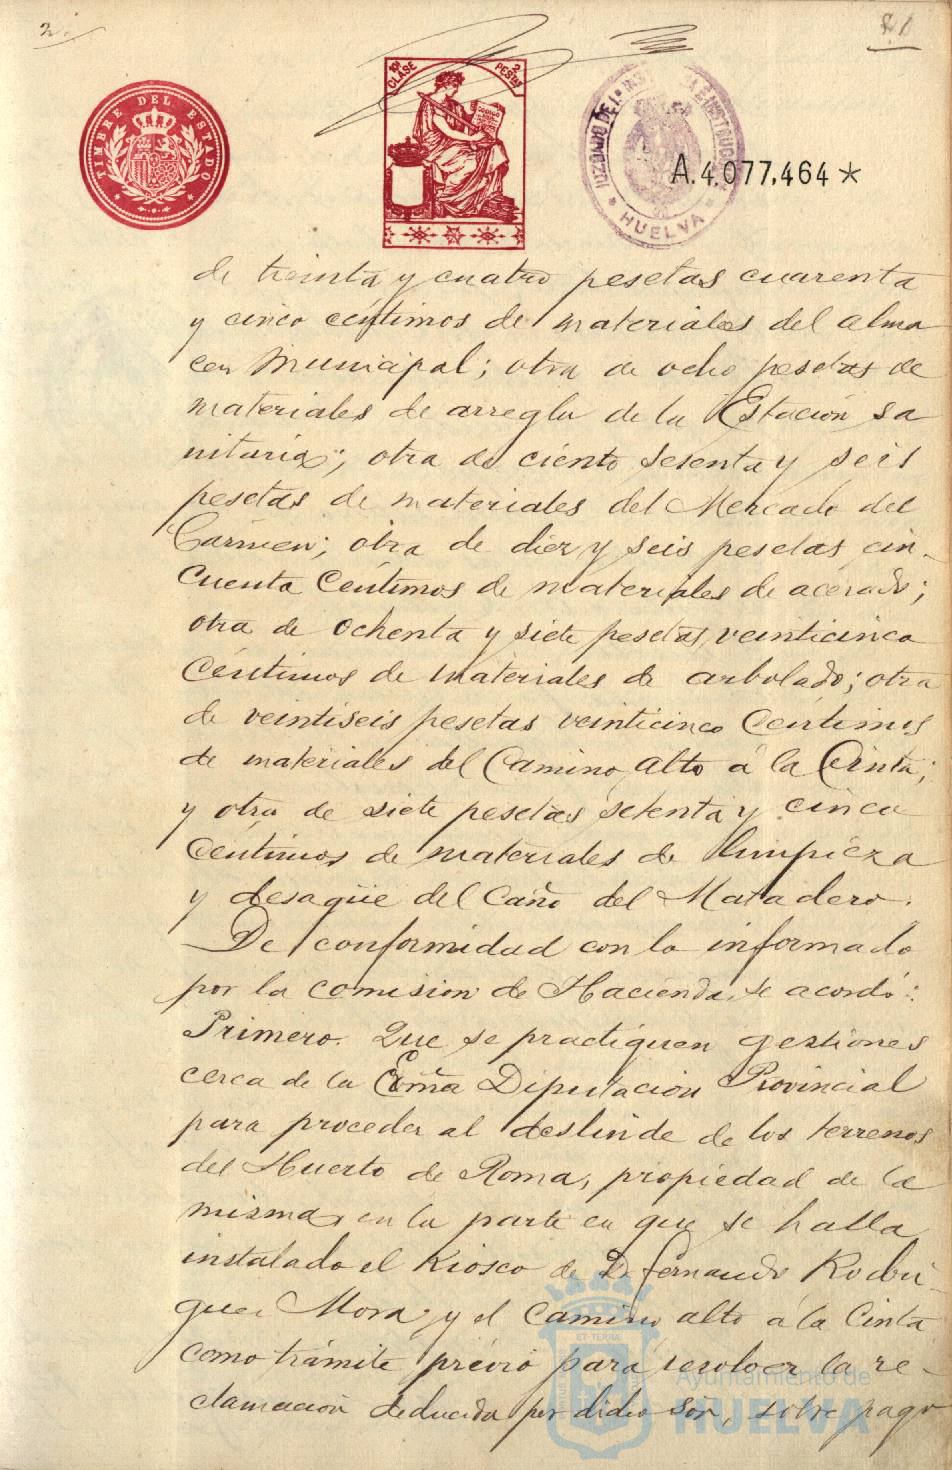 2
21
TIMBRE DEL ESTADO
10ª CLASE
2 PESETAS
JUZGADO DE 1ª INSTANCIA E INSTRUCCION
HUELVA
A.4.077.464*
de treinta y cuatro pesetas cuarenta
y cinco céntimos de materiales del alma
cen Municipal; otra de ocho pesetas de
materiales de arreglo de la Estación sa
nitaria; otra de ciento sesenta y seis
pesetas de materiales del Mercado del
Cármen; otra de diez y seis pesetas cin-
cuenta céntimos de materiales de acerado;
otra de ochenta y siete pesetas veinticinco
céntimos de materiales de arbolado; otra
de veintiseis pesetas veinticinco céntimos
de materiales del Camino alto á la Cinta;
y otra de siete pesetas setenta y cinco
céntimos de materiales de limpieza
y desagüe del Caño del Matadero.
De conformidad con lo informado
por la comision de Hacienda, se acordó:
Primero. Que se practiquen gestiones
cerca de la Exmã Diputacion Provincial
para proceder al deslinde de los terrenos
del Huerto de Roma, propiedad de la
misma, en la parte en que se halla
instalado el Kiosco de D. Fernando Rodri
guez Mora, y el camino alto á la Cinta
como trámite prévio para resolver la re-
clamación deducida por dicho Sör, sobre pago
ET TERRA
Ayuntamiento de
HUELVA